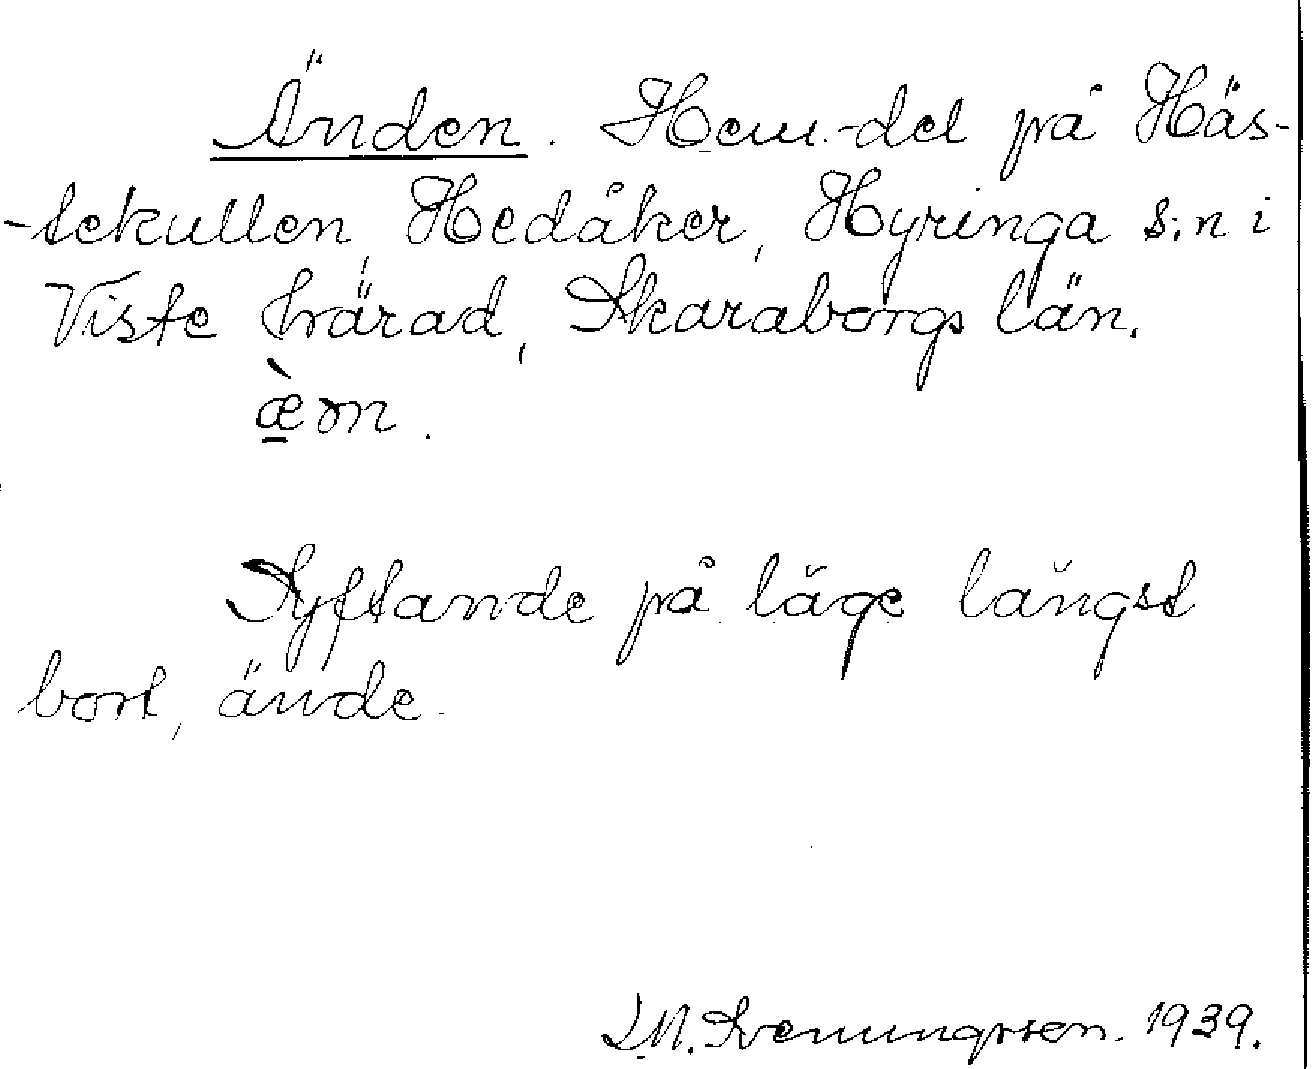 Änden. Hem.-del på Häs-
-tekullen, Hedåker, Hyringa s:n i
Viste härad, Skaraborgs län.
æ̀ɷn.
Syftande på läge längst
bort, ände.
L.M. Svenungsson. 1939.